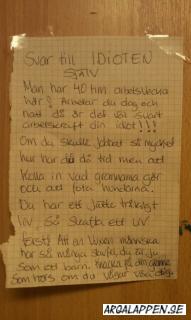 Svar till IDIOTEN
SJÄLV
Man har 40 tim arbetsvecka
här? Arbetar du dag och
natt då är det väl svart
arbetskraft din idiot!!!
Om du skulle jobbat så mycket
hur har du då tid med att
kolla in vad grannarna gör
och att fota hundarna.
Du har ett jätte tråkigt
liv, så skaffa ett LIV
först! Att en vuxen människa
har så många stavfel, du är ju
som ett barn. Knacka på din granne
som hörs om du vågar våra dig.
ARGALAPPEN.SE